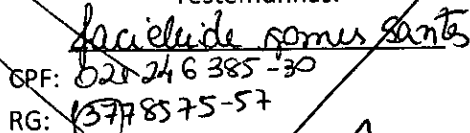 Testemunhas:
Jacieleide Gomes Santos
CPF: 021 246 385-30
RG: 13778575-57